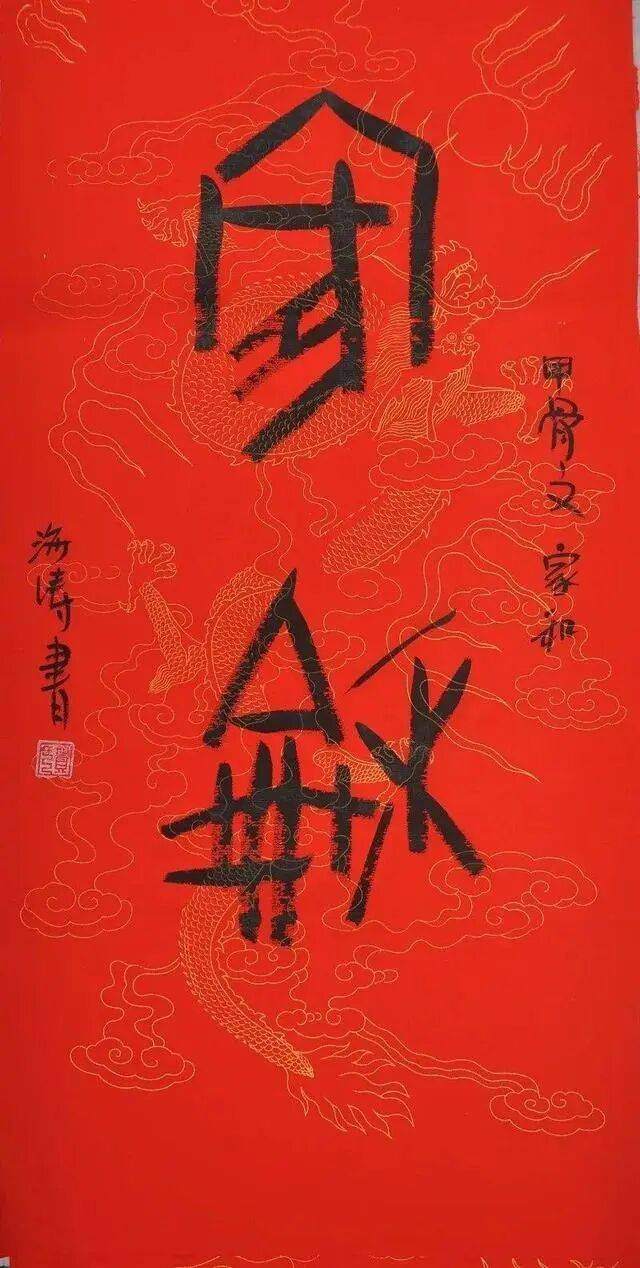 家
龢
甲骨文 家和
海涛書